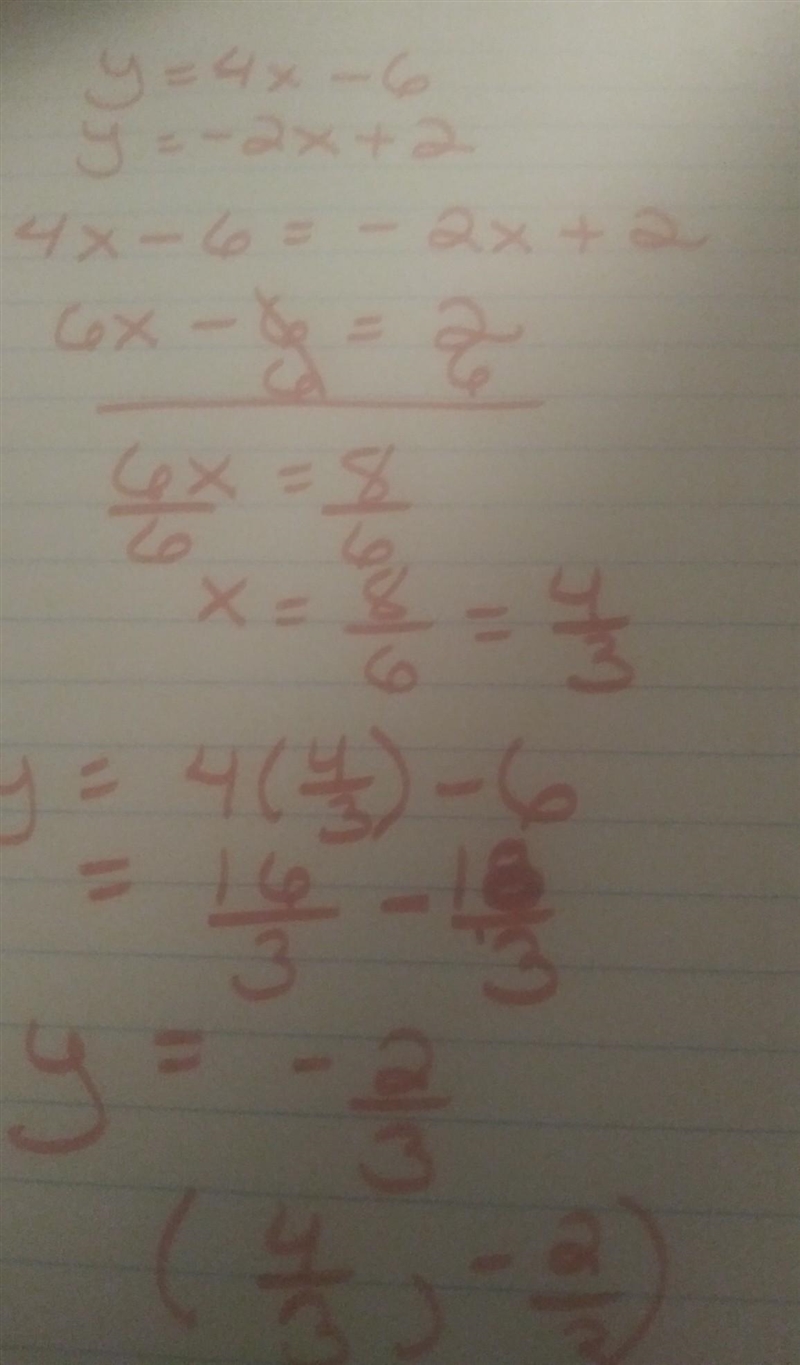 y = 4x - 6
y = -2x + 2
4x - 6 = - 2x + 2
6x - 6 = 2
6 6
6x/6 = 8/6
x = 8/6 = 4/3
y = 4(4/3) - 6
= 16/3 - 18/3
y = - 2/3
(4/3, - 2/3)